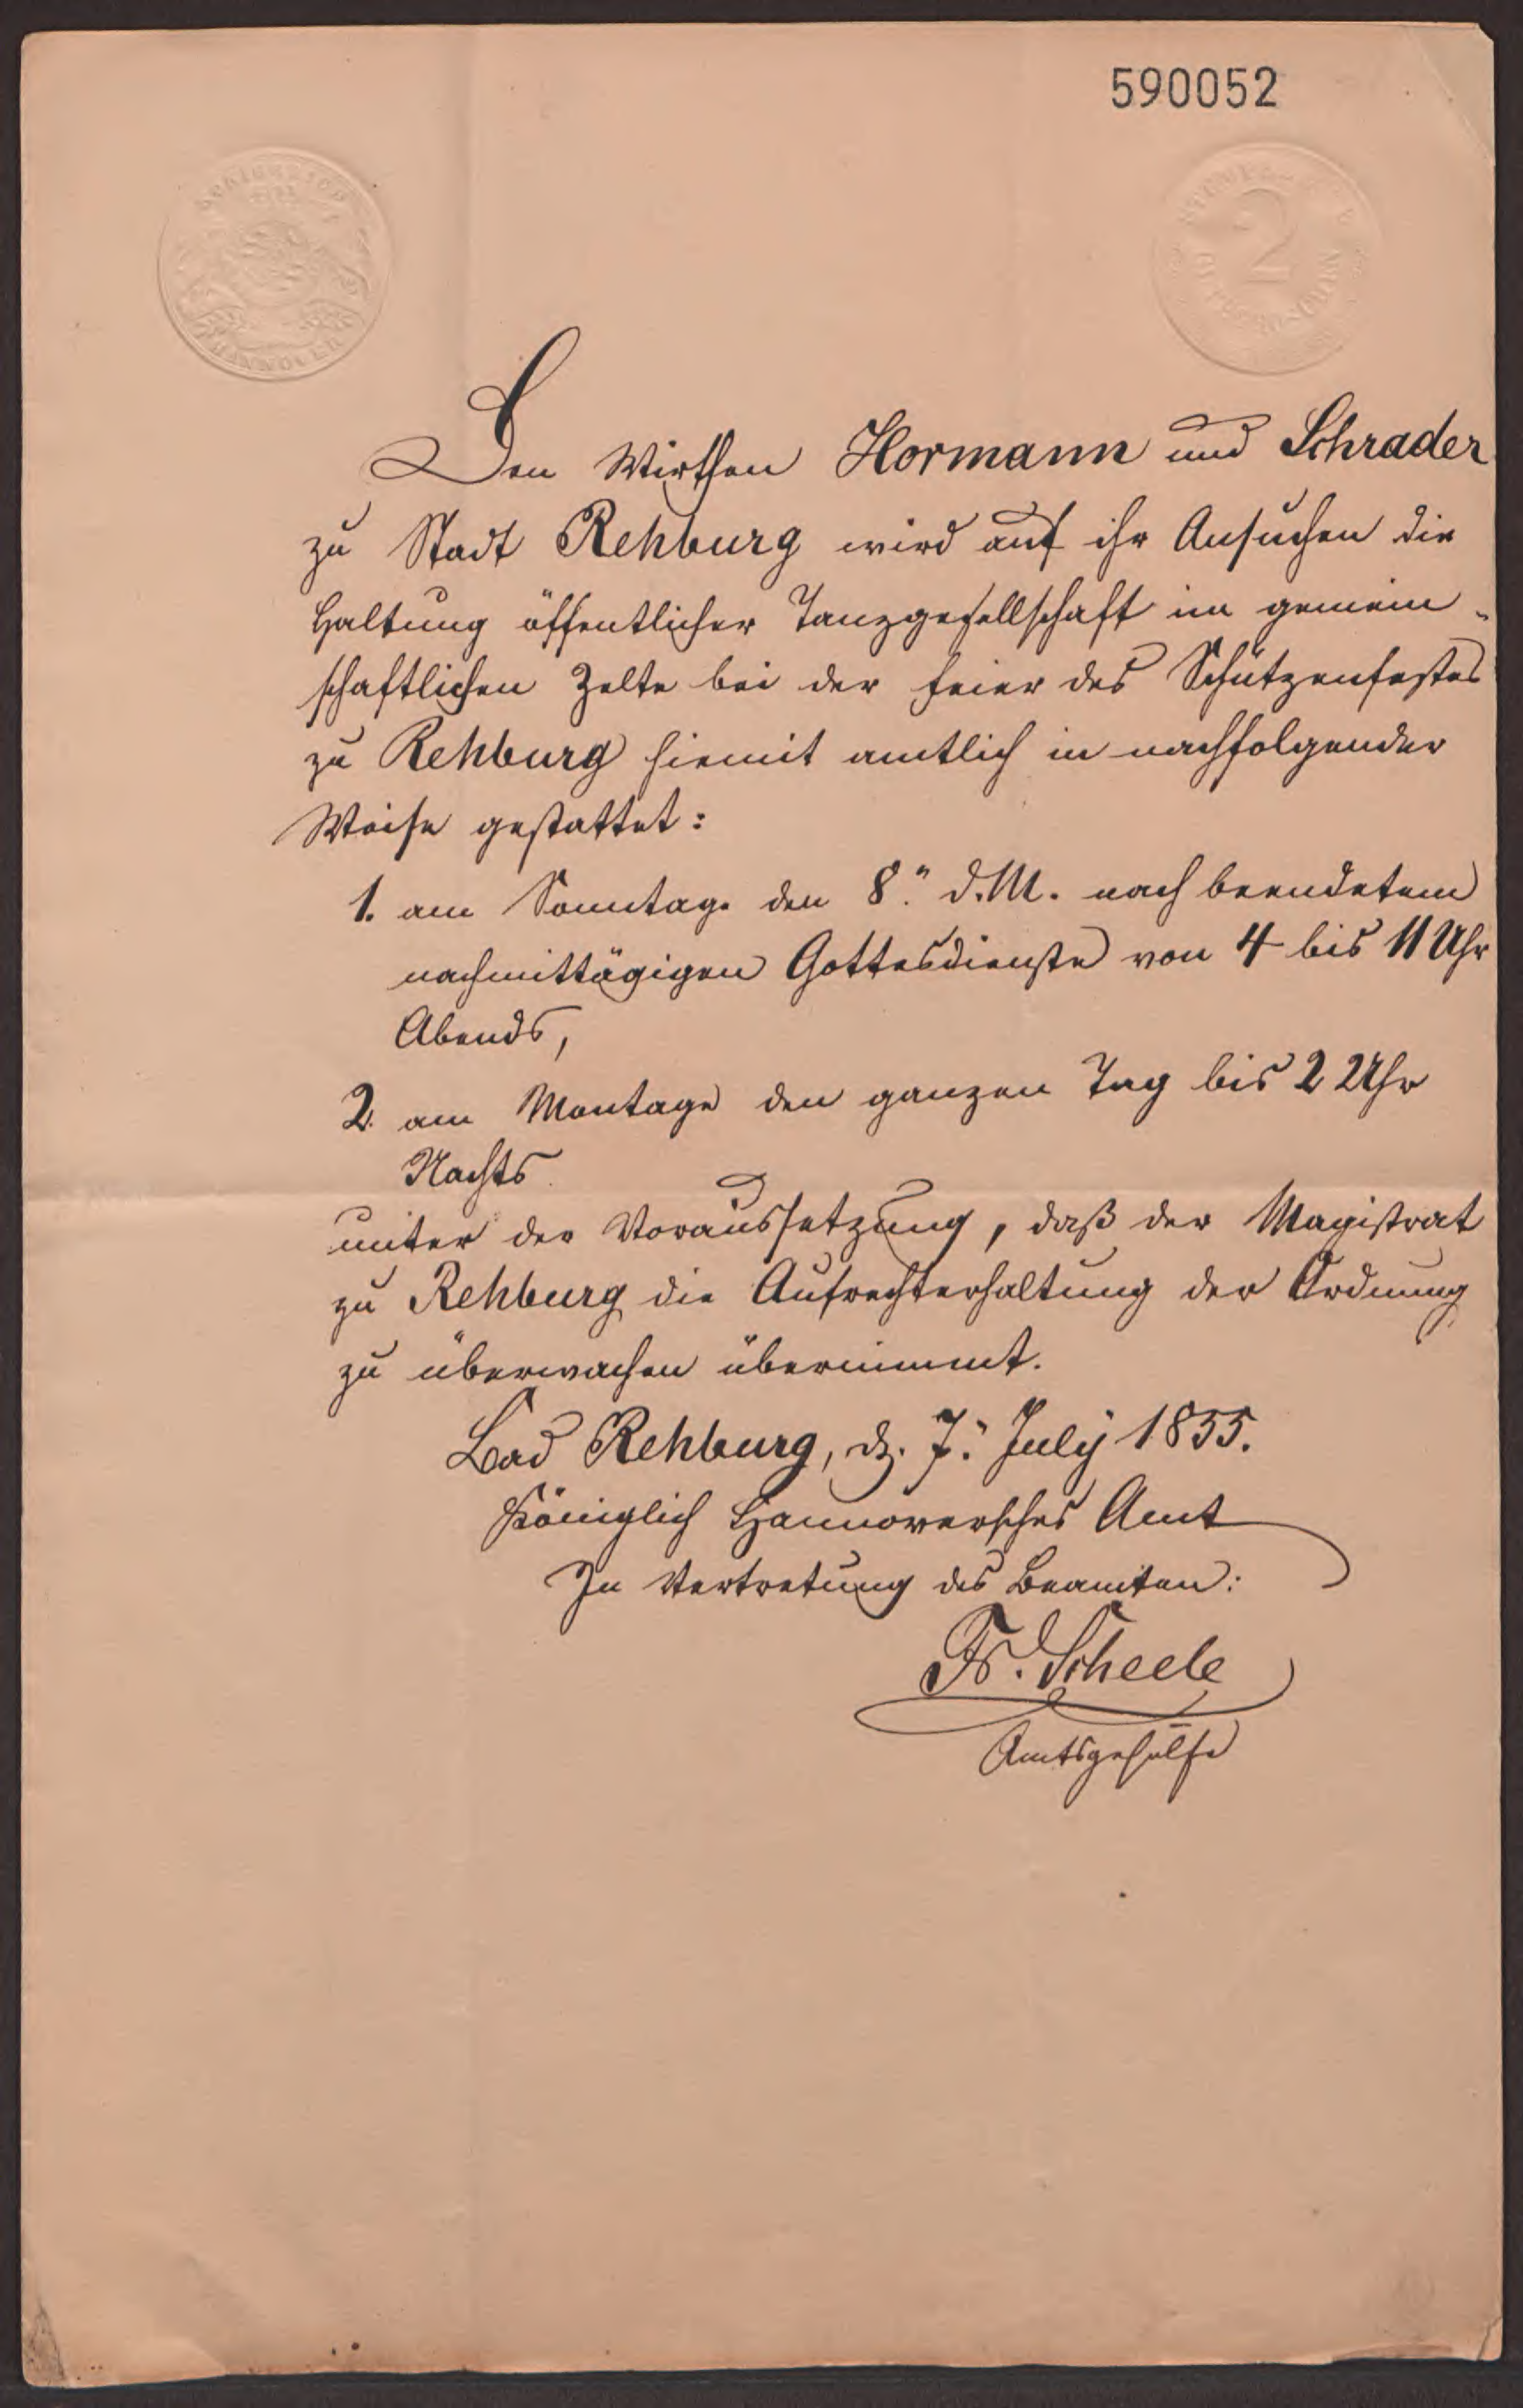 590052
KÖNIGREICH
HANNOVER
2
Den Wirthen Hormann und Schrader
zu Stadt Rehburg wird auf ihr Ansuchen die
Haltung öffentlicher Tanzgesellschaft im gemein-
schaftlichen Zelte bei der Feier des Schützenfestes
zu Rehburg hiemit amtlich in nachfolgender
Weise gestattet:
1. am Sonntage den 8." d. M. nach beendetem
nachmittägigen Gottesdienste von 4 bis 11 Uhr
Abends,
2. am Montage den ganzen Tag bis 2 Uhr
Nachts.
unter der Voraussetzung, daß der Magistrat
zu Rehburg die Aufrechterhaltung der Ordnung
zu überwachen übernimmt.
Bad Rehburg, d. 7." July 1855.
Königlich Hannoversches Amt
In Vertretung des Beamten:
Fr. Scheele
Amtsgehülfe